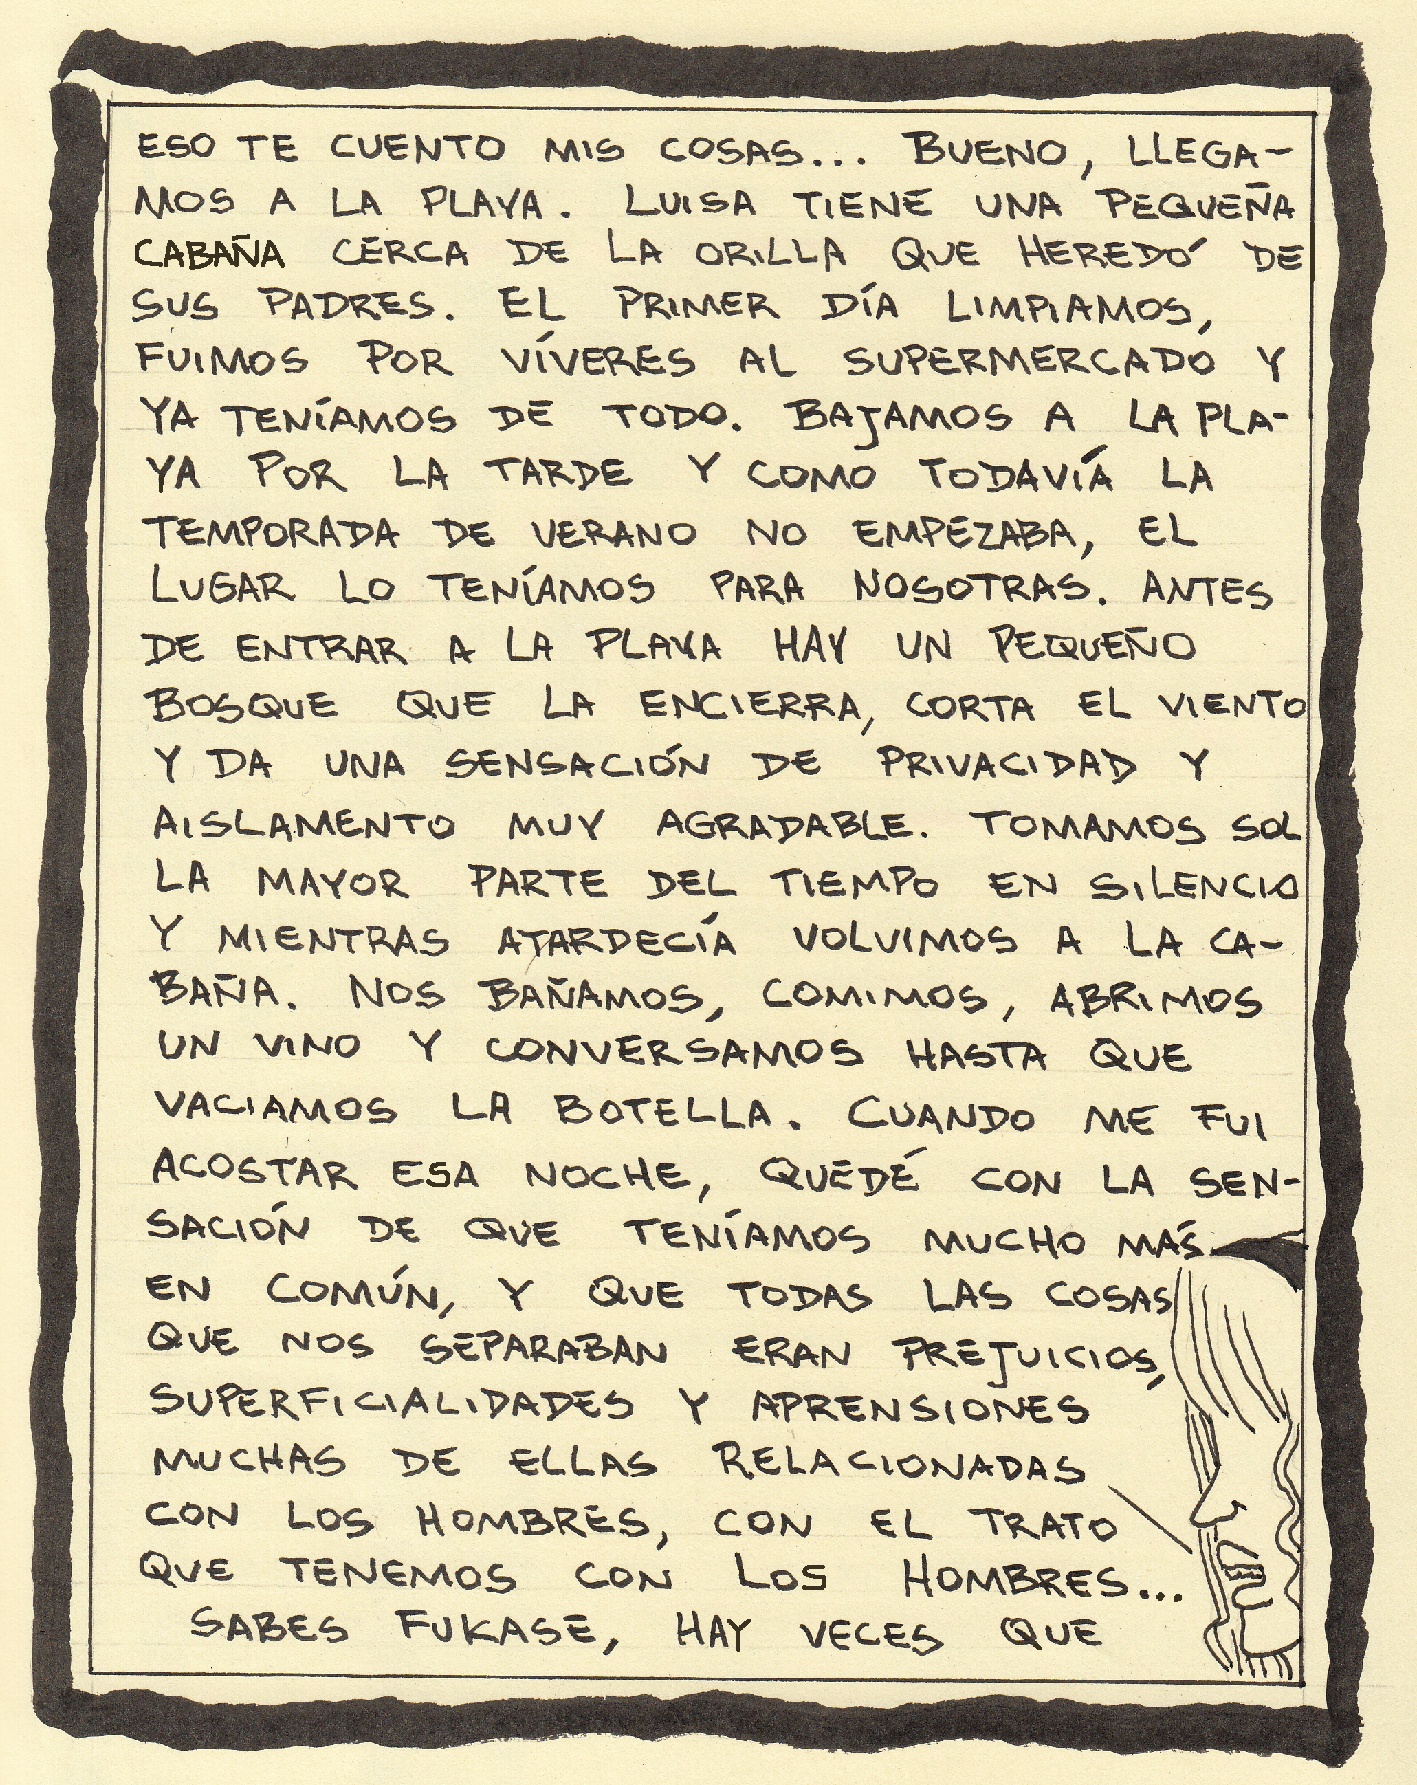 ESO TE CUENTO MIS COSAS... BUENO, LLEGA-
MOS A LA PLAYA. LUISA TIENE UNA PEQUEÑA
CABAÑA CERCA DE LA ORILLA QUE HEREDÓ DE
SUS PADRES. EL PRIMER DÍA LIMPIAMOS,
FUIMOS POR VÍVERES AL SUPERMERCADO Y
YA TENÍAMOS DE TODO. BAJAMOS A LA PLA-
YA POR LA TARDE Y COMO TODAVÍA LA
TEMPORADA DE VERANO NO EMPEZABA, EL
LUGAR LO TENÍAMOS PARA NOSOTRAS. ANTES
DE ENTRAR A LA PLAYA HAY UN PEQUEÑO
BOSQUE QUE LA ENCIERRA, CORTA EL VIENTO
Y DA UNA SENSACIÓN DE PRIVACIDAD Y
AISLAMENTO MUY AGRADABLE. TOMAMOS SOL
LA MAYOR PARTE DEL TIEMPO EN SILENCIO
Y MIENTRAS ATARDECÍA VOLVIMOS A LA CA-
BAÑA. NOS BAÑAMOS, COMIMOS, ABRIMOS
UN VINO Y CONVERSAMOS HASTA QUE
VACIAMOS LA BOTELLA. CUANDO ME FUI
ACOSTAR ESA NOCHE, QUEDÉ CON LA SEN-
SACIÓN DE QUE TENÍAMOS MUCHO MÁS
EN COMÚN, Y QUE TODAS LAS COSAS
QUE NOS SEPARABAN ERAN PREJUICIOS,
SUPERFICIALIDADES Y APRENSIONES
MUCHAS DE ELLAS RELACIONADAS
CON LOS HOMBRES, CON EL TRATO
QUE TENEMOS CON LOS HOMBRES...
SABES FUKASE, HAY VECES QUE